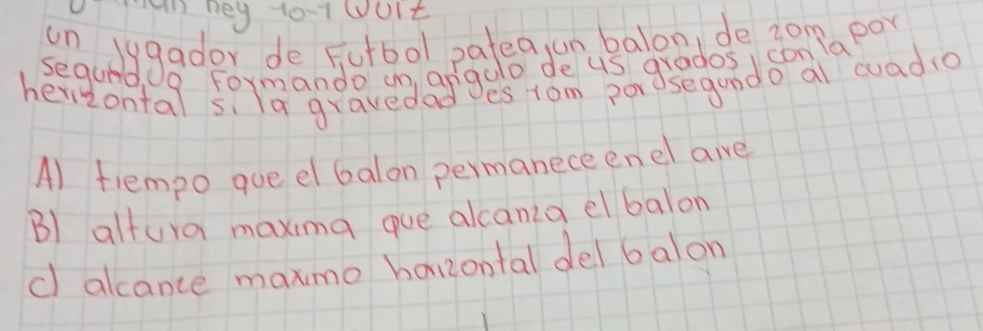 hey 10-1 Wuit
un jugador de Futbol patea un balon, de 20m por
segundo formando un angulo de 45 grados con la
horizontal si la gravedad es 10m por segundo al cuadro
A) tiempo que el balon permanece en el aire
B) altura maxima que alcanza el balon
c) alcance maximo horizontal del balon